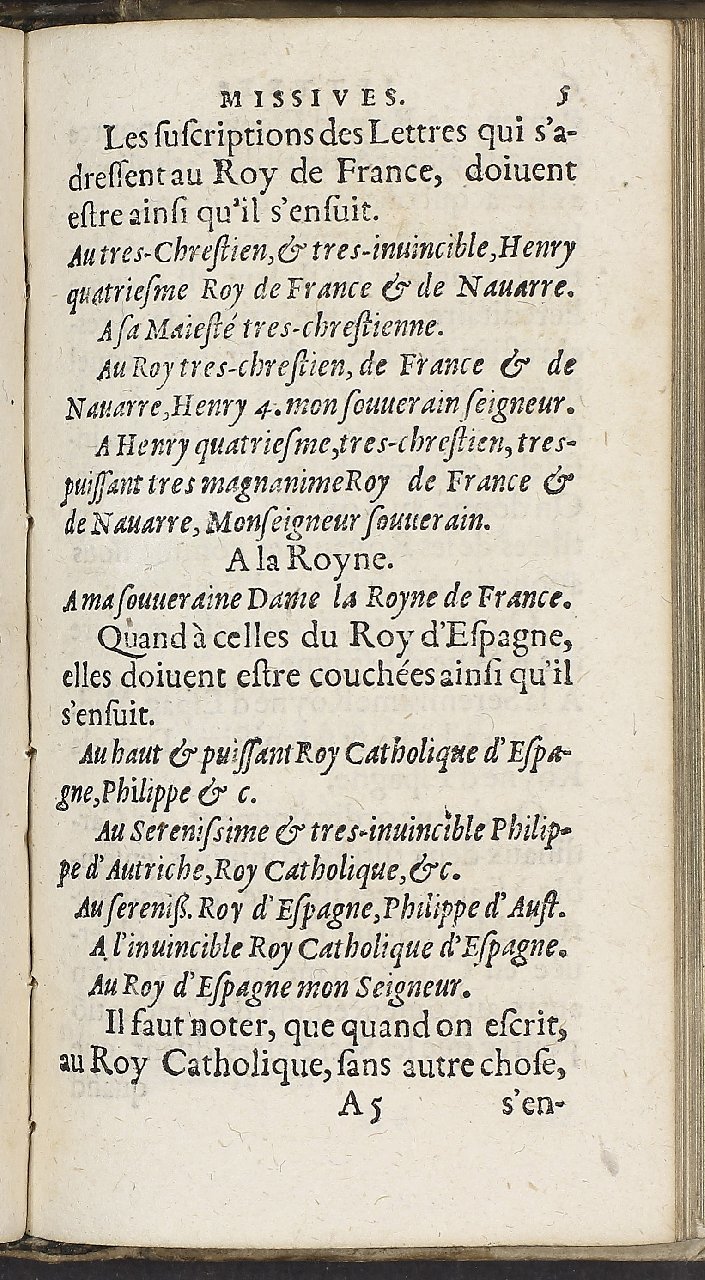 MISSIVES. 5
Les ſuſcriptions des Lettres qui s'a-
dreſſent au Roy de France, doiuent
eſtre ainſi qu'il s'enſuit.
Au tres-Chreſtien, & tres-inuincible, Henry
quatrieſme Roy de France & de Nauarre.
A ſa Maieſté tres-chreſtienne.
Au Roy tres-chreſtien, de France & de
Nauarre, Henry 4. mon ſouuerain ſeigneur.
A Henry quatrieſme, tres-chreſtien, tres-
puiſſant tres magnanime Roy de France &
de Nauarre, Monſeigneur ſouuerain.
A la Royne.
A ma ſouueraine Dame la Royne de France.
Quand à celles du Roy d'Eſpagne,
elles doiuent eſtre couchées ainſi qu'il
s'enſuit.
Au haut & puiſſant Roy Catholique d'Eſpa-
gne, Philippe & c.
Au Sereniſsime & tres-inuincible Philip-
pe d'Autriche, Roy Catholique, &c.
Au ſereniß. Roy d'Eſpagne, Philippe d'Auſt.
A l'inuincible Roy Catholique d'Eſpagne.
Au Roy d'Eſpagne mon Seigneur.
Il faut noter, que quand on eſcrit,
au Roy Catholique, ſans autre choſe,
A 5 s'en-